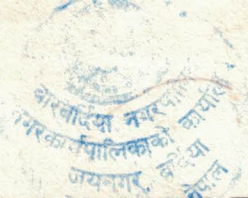 बारबर्दिया नगरपालि
नगरकार्यपालिकाको कार्याल
जयनगर, बर्दिया
नेपाल